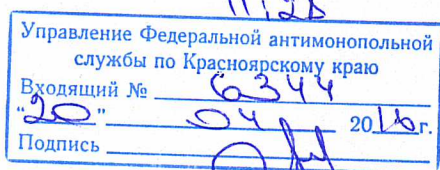 Управление Федеральной антимонопольной
службы по Красноярскому краю
Входящий № 6344
"20" 04 2016г.
Подпись